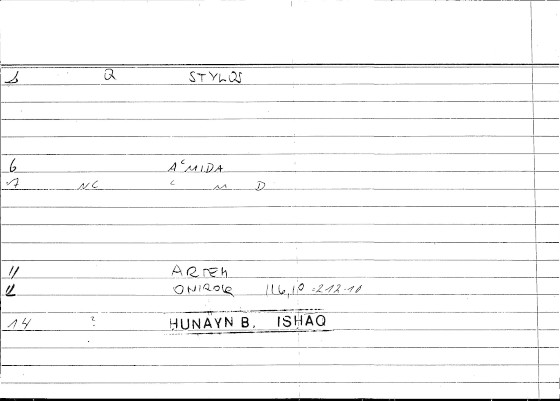 1 Q STYLOS
6 AʿMIDA
7 NC ʿ M D
11 ARTEM
12 ONIROK 116,10 = 212.10
14 ? HUNAYN B. ISHAQ